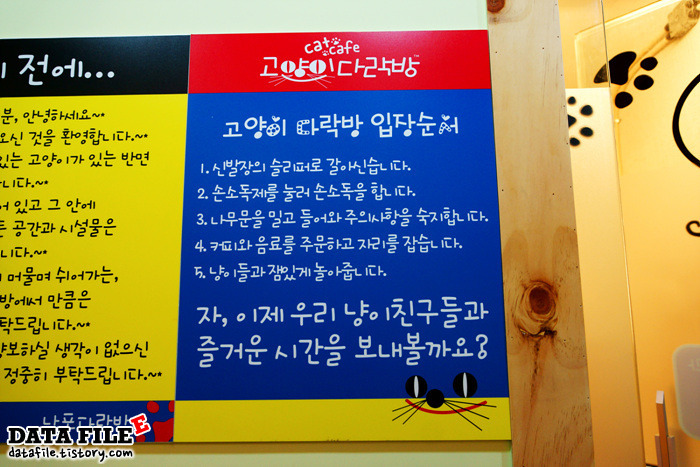 ㅣ 전에...
분, 안녕하세요~*
오신 것을 환영합니다.~*
있는 고양이가 있는 반면
니다.~*
어 있고 그 안에
든 공간과 시설물은
니다.~*
머물며 쉬어가는,
방에서 만큼은
부탁드립니다.~*
양보하실 생각이 없으신
정중히 부탁드립니다.~*
cat cafe
고양이다락방
고양이 다락방 입장순서
1. 신발장의 슬리퍼로 갈아신습니다.
2. 손소독제를 눌러 손소독을 합니다.
3. 나무문을 밀고 들어와 주의사항을 숙지합니다.
4. 커피와 음료를 주문하고 자리를 잡습니다.
5. 냥이들과 잼있게 놀아줍니다.
자, 이제 우리 냥이친구들과
즐거운 시간을 보내볼까요?
DATA FILE
datafile.tistory.com